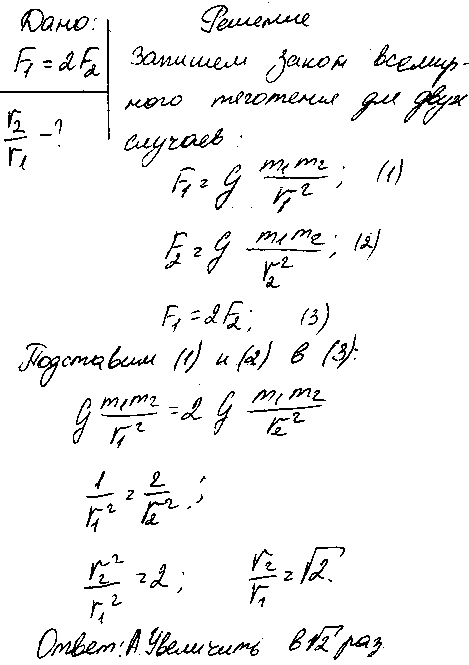 Дано:
F₁ = 2F₂
r₂/r₁ - ?
Решение
Запишем закон всемир-
ного тяготения для двух
случаев:
F₁ = G m₁m₂/r₁²; (1)
F₂ = G m₁m₂/r₂²; (2)
F₁ = 2F₂; (3)
Подставим (1) и (2) в (3):
G m₁m₂/r₁² = 2 G m₁m₂/r₂²
1/r₁² = 2/r₂²;
r₂²/r₁² = 2; r₂/r₁ = √2.
Ответ: А. Увеличить в √2 раз